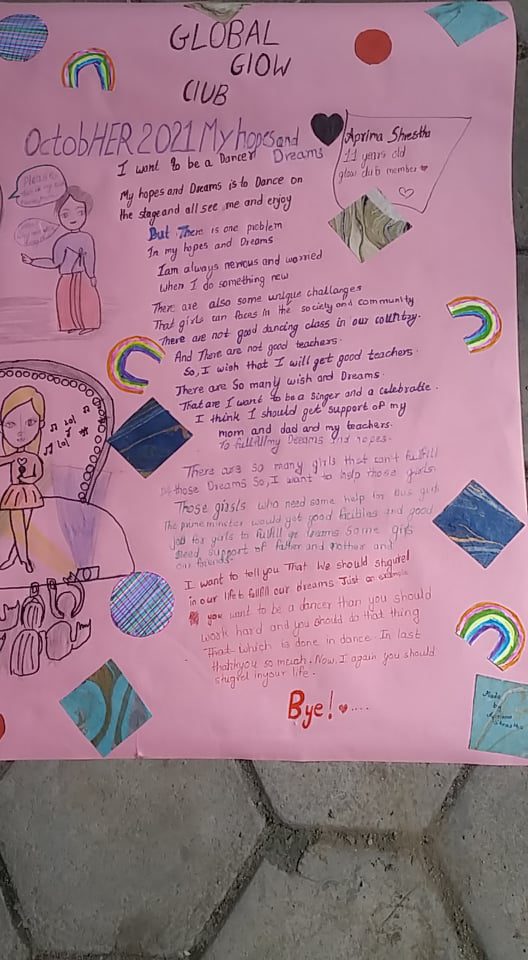 GLOBAL
GlOW
ClUB
OctobHER 2021 My hopes and
Dreams
Aprima Shrestha
11 years old
glow club member
I want to be a Dancer
My hopes and Dreams is to Dance on
the stage and all see me and enjoy
But There is one problem
In my hopes and Dreams
Iam always nervous and worried
when I do something new
There are also some unique challanges
That girls can faces in the society and community
There are not good dancing class in our country.
And There are not good teachers.
So, I wish that I will get good teachers.
There are So many wish and Dreams.
That are I want to be a singer and a celebratie.
I think I should get support of my
mom and dad and my teachers.
To fulfill my Dreams and hopes.
There are so many girls that can't fulfill
those Dreams So, I want to help those girls.
Those girsls who need some help for us girls
The prime minister would get good facilties and good
job for girls to fulfill dreams Some girls
need support of father and mother and
our friends.
I want to tell you That We should shgurel
in our life to fulfill our dreams Just as example
you want to be a dancer than you should
work hard and you should do that thing
That which is done in dance. In last
thankyou so much. Now, I again you should
shugrel in your life.
Bye!
Made
by
Aprima
Shrestha